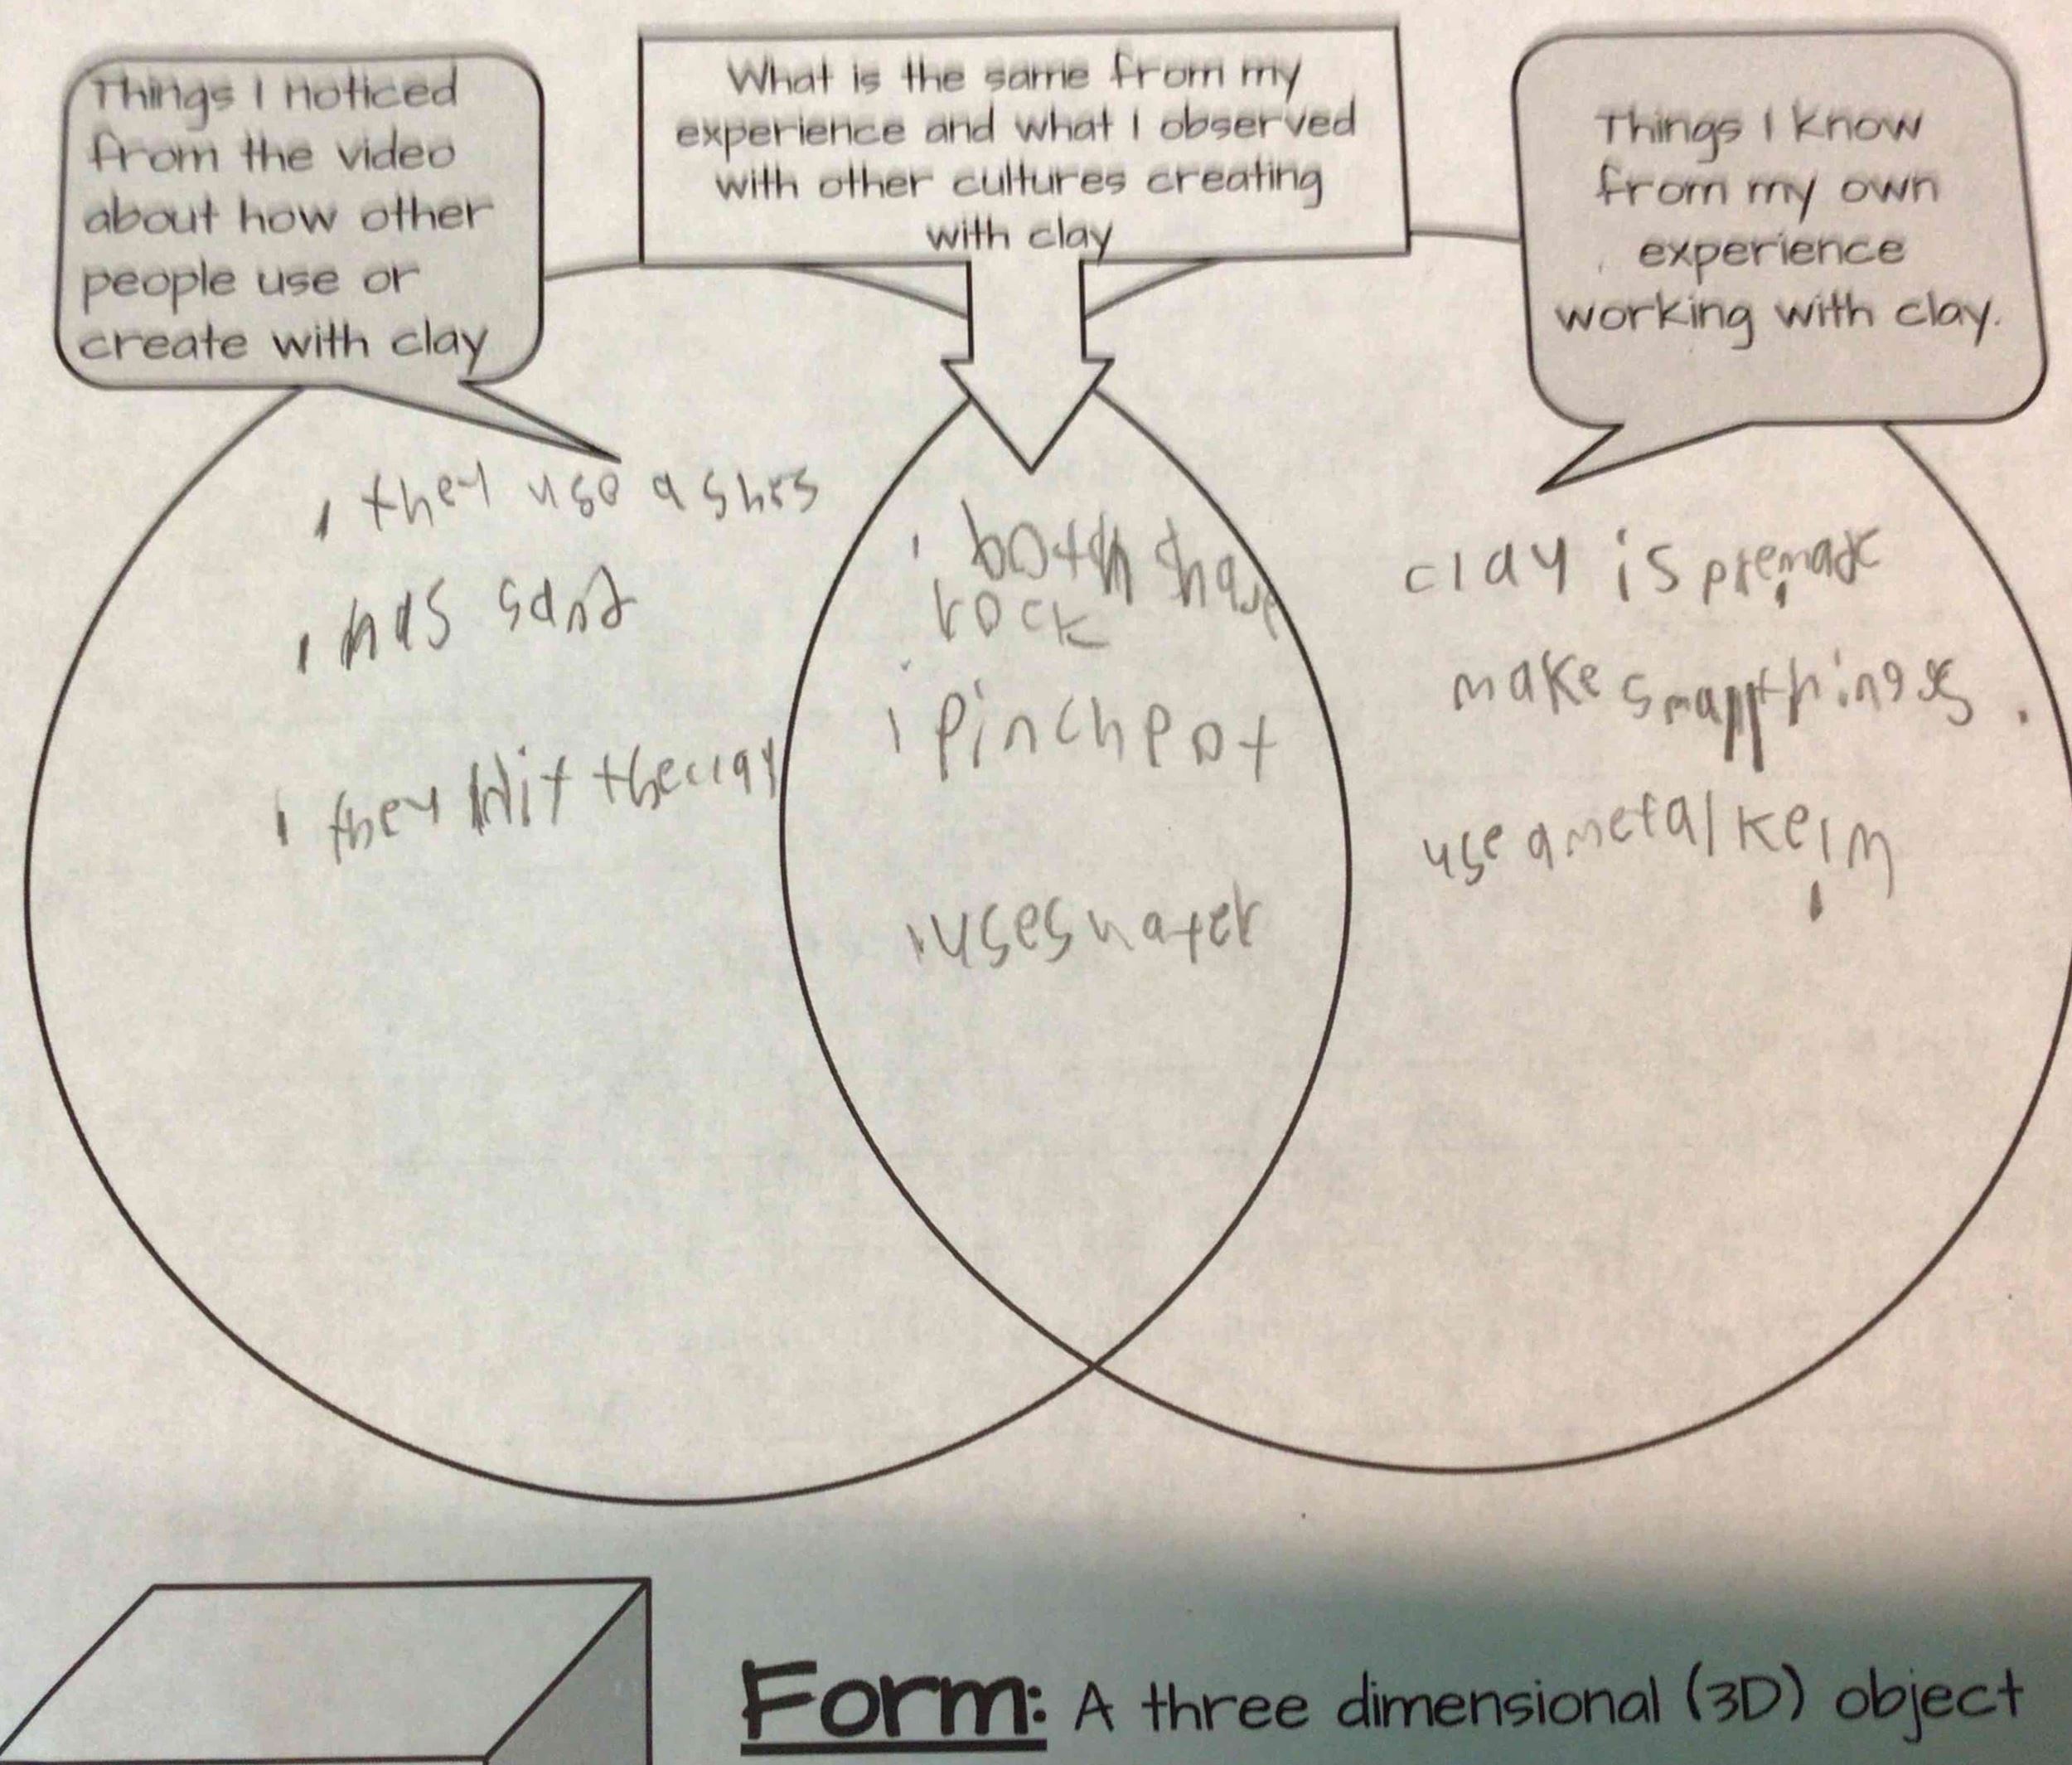 Things I noticed
from the video
about how other
people use or
create with clay
What is the same from my
experience and what I observed
with other cultures creating
with clay
Things I know
from my own
experience
working with clay.
they use ashes
has sand
they hit the clay
both have
rock
pinch pot
uses water
clay is premade
make small things
use a metal keln
Form: A three dimensional (3D) object